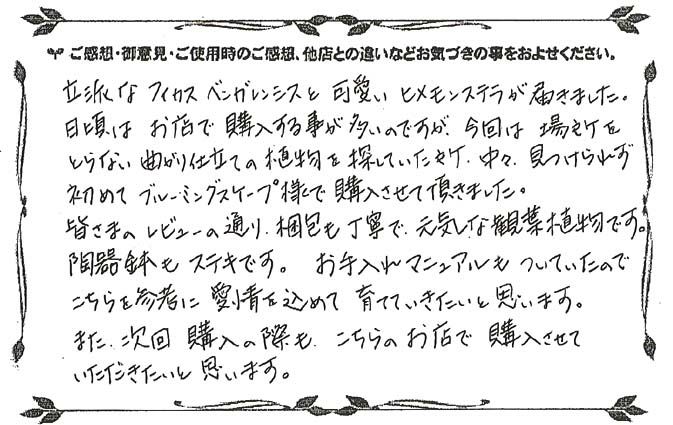 ご感想・御意見・ご使用時のご感想、他店との違いなどお気づきの事をおよせください。
立派な フィカス ベンガレンシスと 可愛い ヒメモンステラが 届きました。
日頃は お店で 購入する事が 多いのですが、今回は 場所を
とらない 曲がり仕立ての 植物を 探していた所、中々、見つけられず
初めて ブルーミングスケープ様で 購入させて頂きました。
皆さまの レビューの 通り、梱包も 丁寧で、元気な 観葉植物です。
陶器鉢も ステキです。 お手入れマニュアルも ついていたので
こちらを参考に 愛情を込めて 育てていきたいと 思います。
また、次回 購入の際も、こちらの お店で 購入させて
いただきたいと 思います。